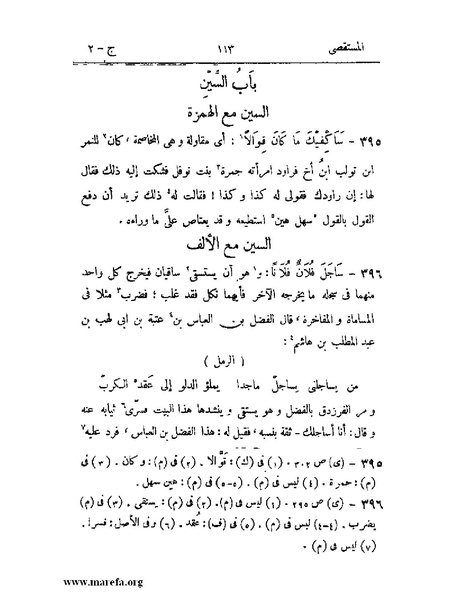 المستقصى ١١٣ ج - ٢
بَابُ السِّيْنِ
السين مع الهمزة
٣٩٥ - سَأَكْفِيْكَ مَا كَانَ قِوَالًا١ : أى مقاولة وهى المخاصمة ، كان٢ للنمر
ابن تولب ابنُ أخ فراود امرأته جمرة٣ بنت نوفل فشكت إليه ذلك فقال
لها : إن راودك فقولى له كذا و كذا ! فقالت له٤ ذلك تريد أن دفع
القول بالقول ٥سهل هين٥ استطيعه و قد يعتاص علىَّ ما وراءه .
السين مع الألف
٣٩٦ - سَاجَلَ فُلَانٌ فُلَانًا : و١ هو أن يستسقى٢ ساقيان فيخرج كل واحد
منهما فى سجله ما يخرجه الآخر فأيهما نكل فقد غلب ؛ فضرب٣ مثلا فى
المساماة و المفاخرة ، قال الفضل بن العباس بن٤ عتبة بن ابى لهب بن
عبد المطلب بن هاشم٤ :
( الرمل )
من يساجلنى يساجلْ ماجدا يملؤ الدلو إلى عَقد٥ الكربْ
و مر الفرزدق بالفضل و هو يستقى و ينشدها هذا البيت فسرّى٦ ثيابه عنه
و قال : أنا أساجلك - ثقة بنسبه ، فقيل له : هذا الفضل بن العباس ، فرد عليه٧
٣٩٥ - (ى) ص ٣٠٢ . (١) فى (ك) : قَوَّالا . (٢) فى (م) : وكان . (٣) فى
(م) : حمرة . (٤) ليس فى (م) . (٥-٥) فى (م) : هين سهل .
٣٩٦ - (ى) ص ٢٩٥ . (١) ليس فى (م) . (٢) فى (م) : يستقى . (٣) فى (م)
يضرب . (٤-٤) ليس فى (م) . (٥) فى (ف) : عُقد . (٦) وفى الأصل : فسرا .
(٧) ليس فى (م) .
www.marefa.org